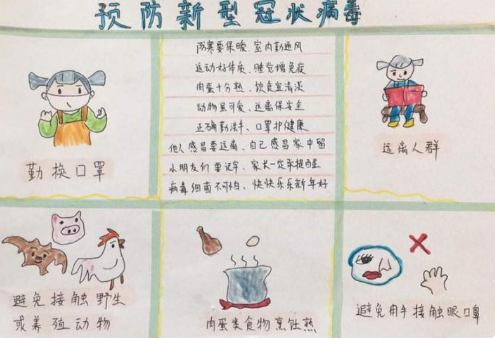 预防新型冠状病毒
防寒要保暖、室内勤通风
运动好体质、睡觉增免疫
肉蛋十分熟、饮食宜清淡
动物虽可爱、远离保安全
正确勤洗手、口罩护健康
他人感冒要远离、自己感冒家中留
小朋友们要记牢、家长一定来提醒
病毒细菌不可怕、快快乐乐新年好
勤换口罩
远离人群
避免接触野生
或养殖动物
肉蛋类食物烹饪熟
避免用手接触眼口鼻